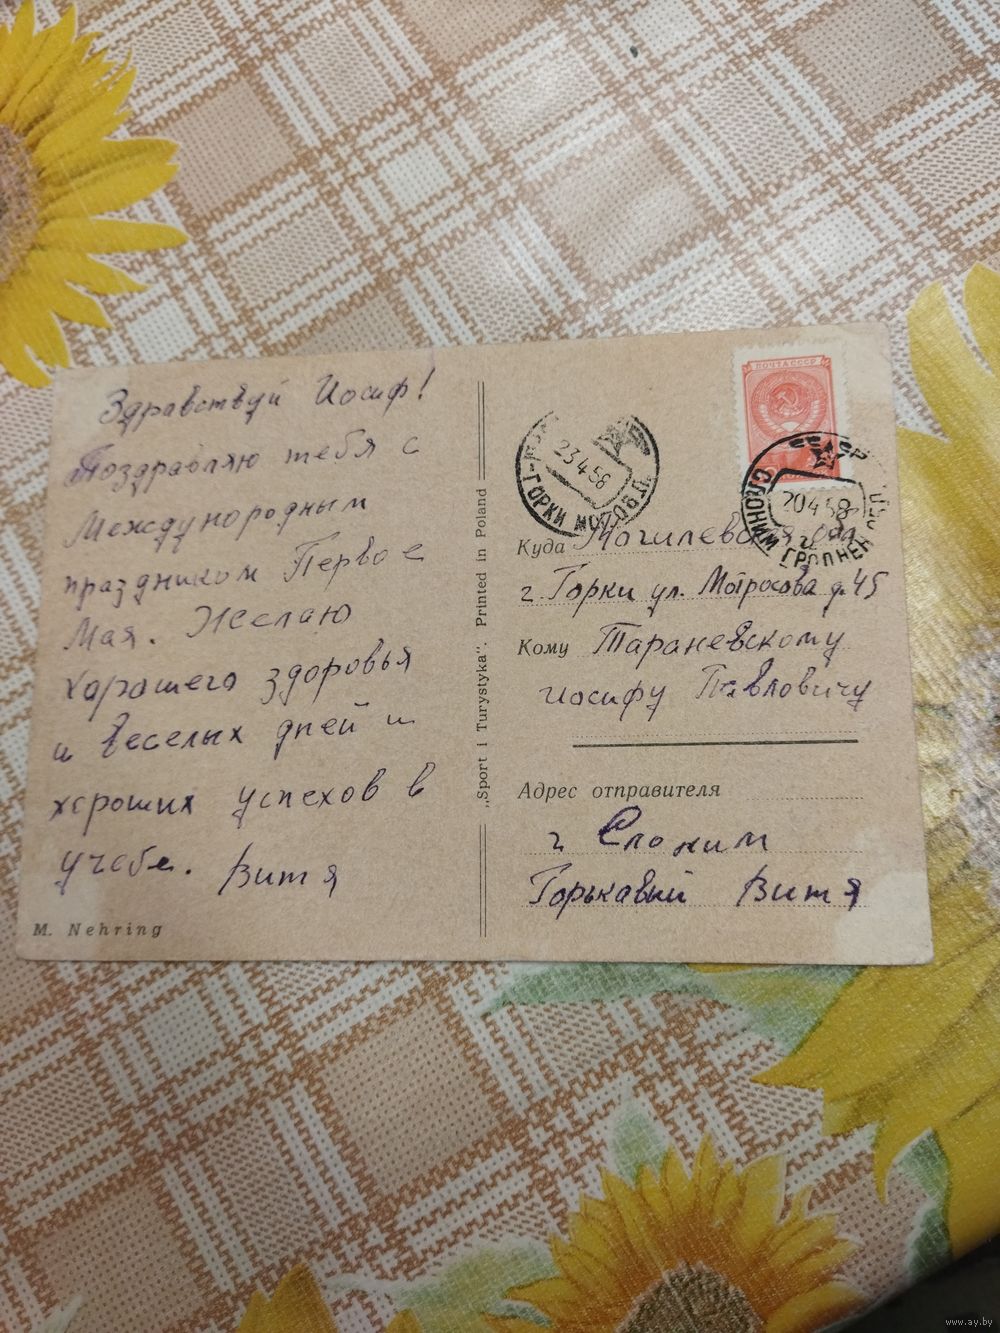 Здравствуй Иосиф!
Поздравляю тебя с
Международным
праздником Первое
Мая. Желаю
хорошего здоровья
и веселых дней и
хороших успехов в
учебе. Витя
M. Nehring
„Sport i Turystyka". Printed in Poland
ПОЧТА СССР
23.4.58
ГОРКИ МОГ. ОБЛ.
20.4.58
СЛОНИМ ГРОДНЕН
Куда Могилевская обл.
г Горки ул. Мотросова д. 45
Кому Тараневскому
Иосифу Павловичу
Адрес отправителя
г Слоним
Горькавый Витя
www.ay.by